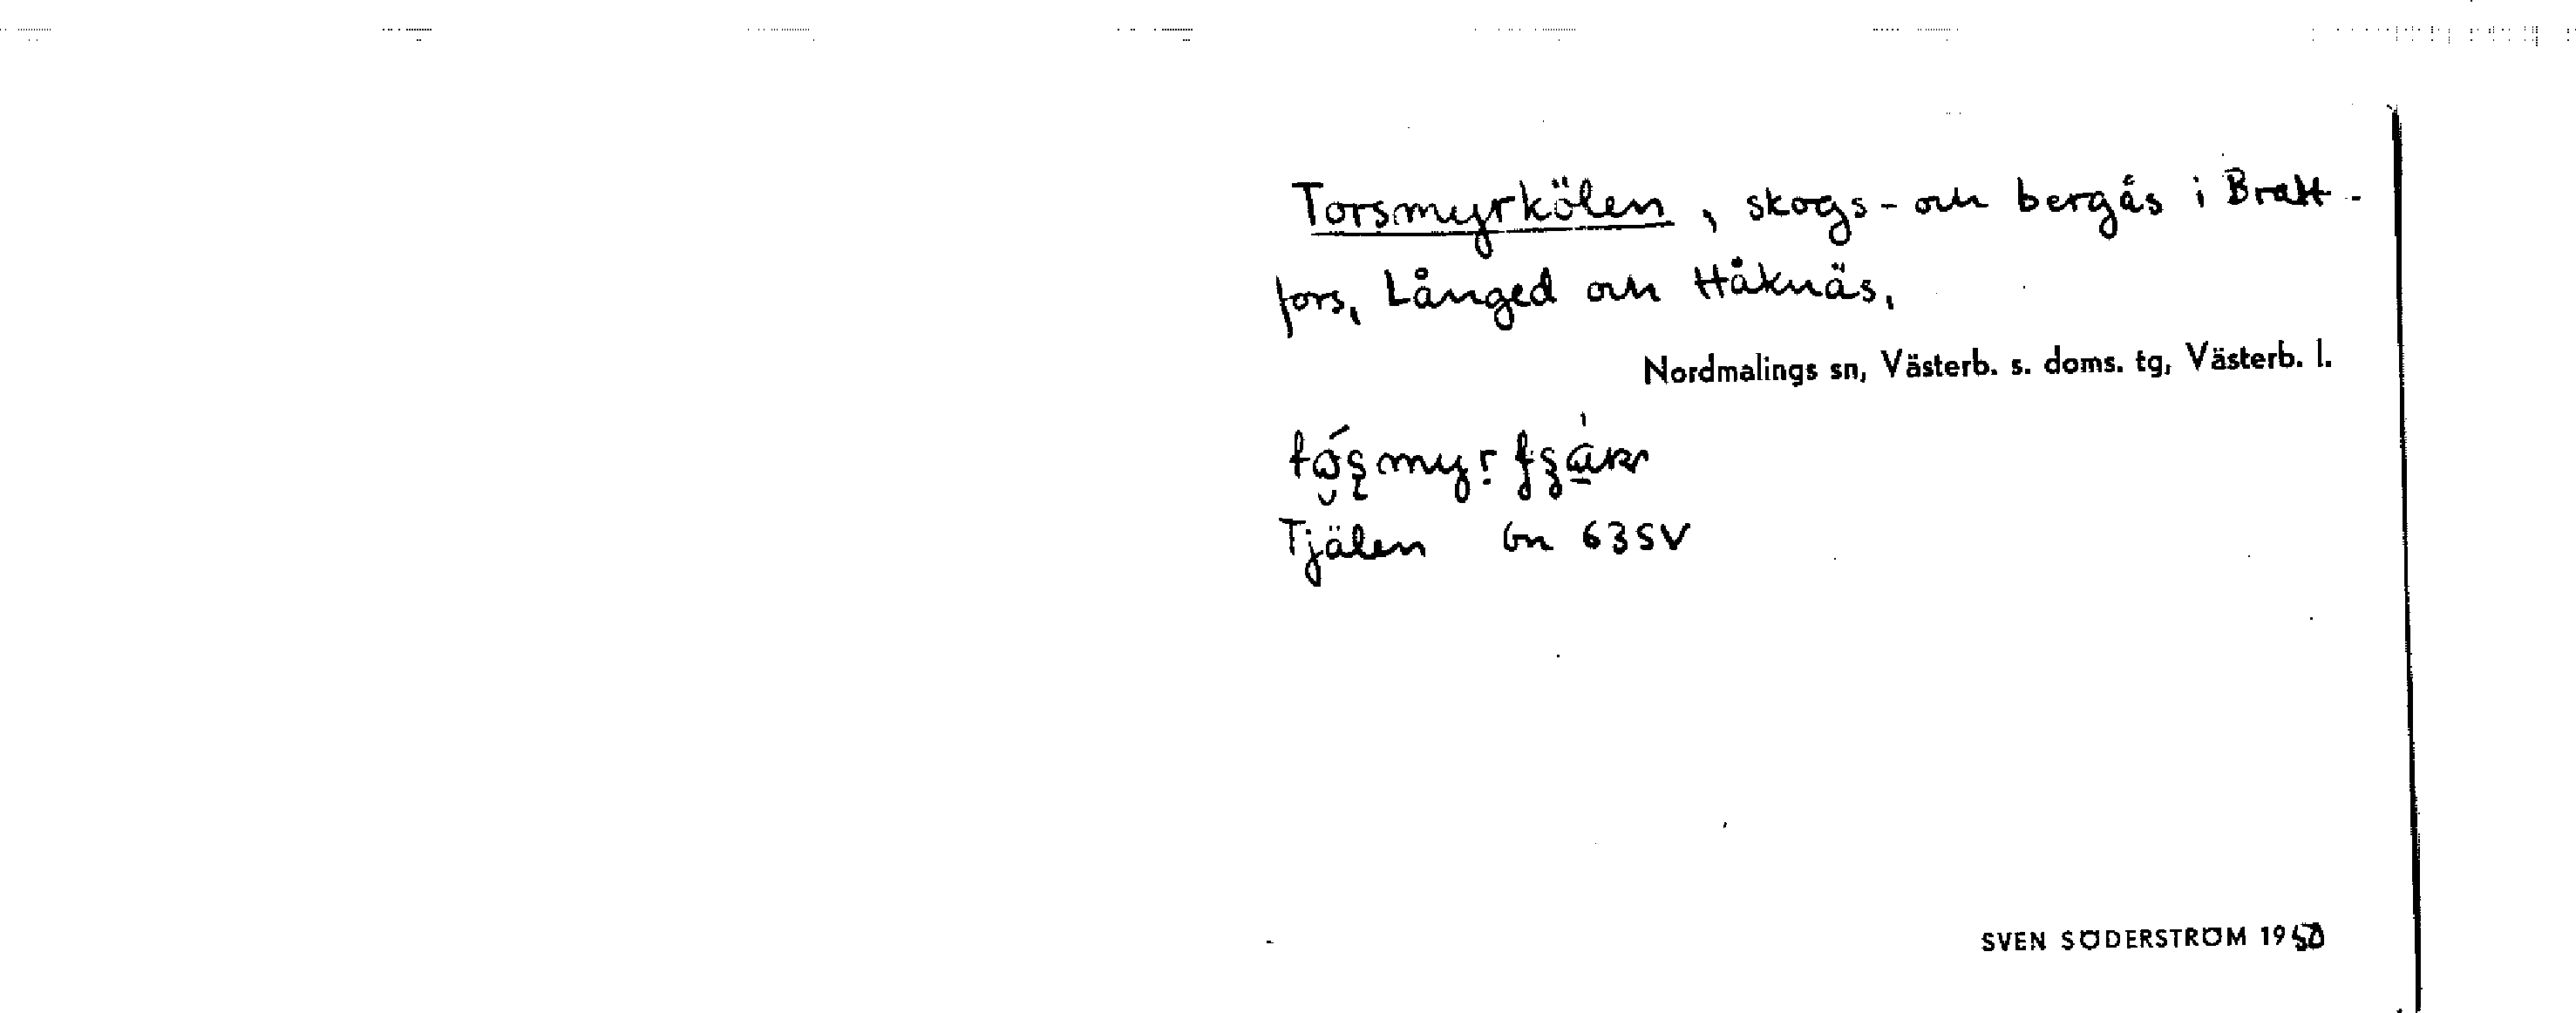 Torsmyrkölen, skogs- och bergås i Bratt-
fors, Långed och Håknäs,
Nordmalings sn, Västerb. s. doms. tg, Västerb. l.
Tjälen Gn 63SV
SVEN SÖDERSTRÖM 1950